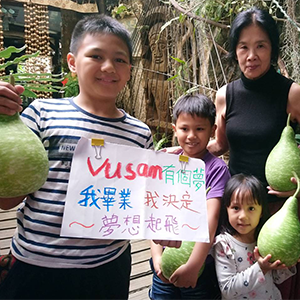 NEW
Vusam 有個夢
我畢業 我決定
～夢想起飛～